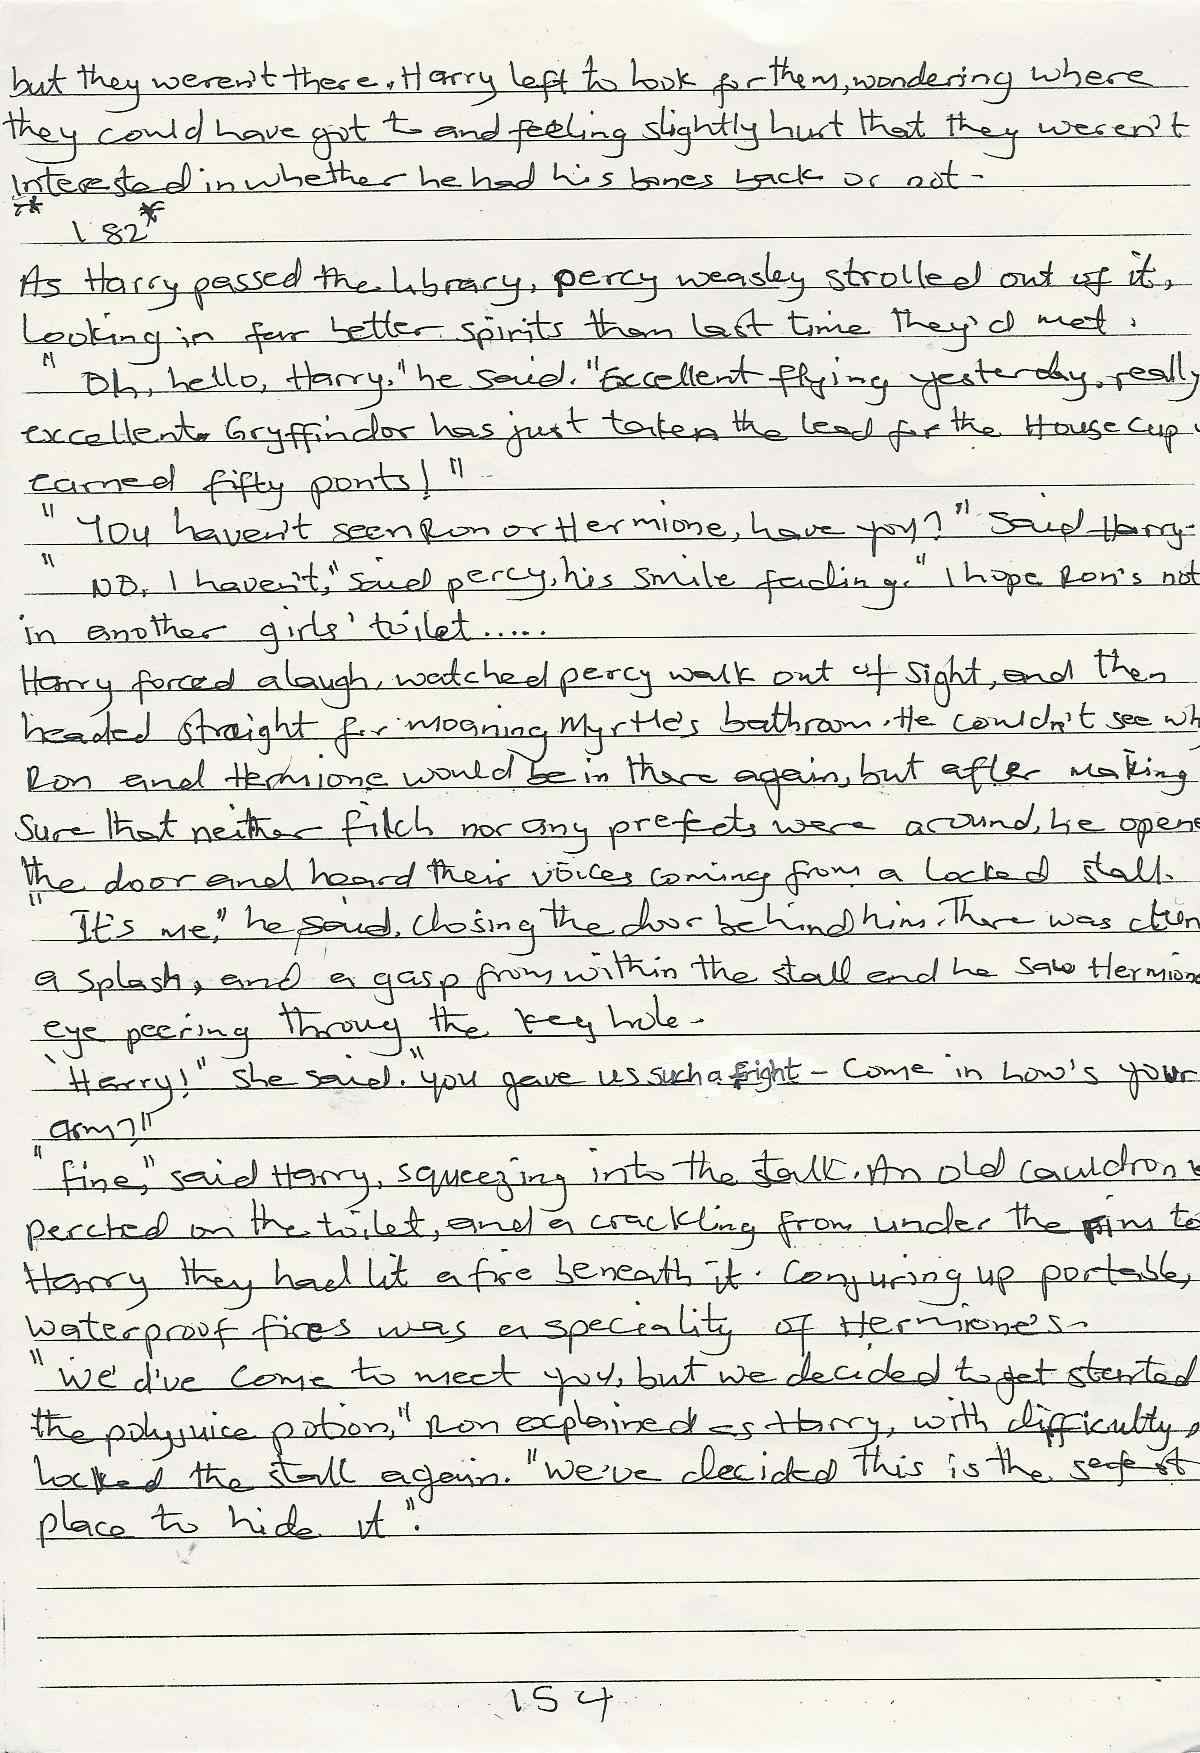 but they weren't there. Harry left to look for them, wondering where
they could have got to and feeling slightly hurt that they weren't
interested in whether he had his bones back or not-
** 182*
As Harry passed the library, percy weasley strolled out of it,
looking in far better spirits than last time they'd met.
"Oh, hello, Harry," he said. "Excellent flying yesterday, really
excellent. Gryffindor has just taken the lead for the House Cup
earned fifty ponts!"
"You haven't seen Ron or Hermione, have you?" said Harry-
"NO, I haven't," said percy, his smile fading. "I hope Ron's not
in another girls' toilet.....
Harry forced a laugh, watched percy walk out of sight, and then
headed straight for moaning Myrtle's bathroom. He couldn't see wh
Ron and Hermione would be in there again, but after making
sure that neither filch nor any prefects were around, he opene
the door and heard their voices coming from a locked stall.
"It's me," he said, closing the door behind him. There was
a splash, and a gasp from within the stall and he saw Hermione
eye peering throug the key hole-
"Harry!" she said. "you gave us such a fright - Come in how's your
arm?"
"fine," said Harry, squeezing into the stall. An old cauldron
perched on the toilet, and a crackling from under the rim to
Harry they had lit a fire beneath it. Conjuring up portable,
waterproof fires was a speciality of Hermione's-
"We'd've come to meet you, but we decided to get started
the polyjuice potion," Ron explained as Harry, with difficulty,
locked the stall again. "we've decided this is the safest
place to hide it".
154